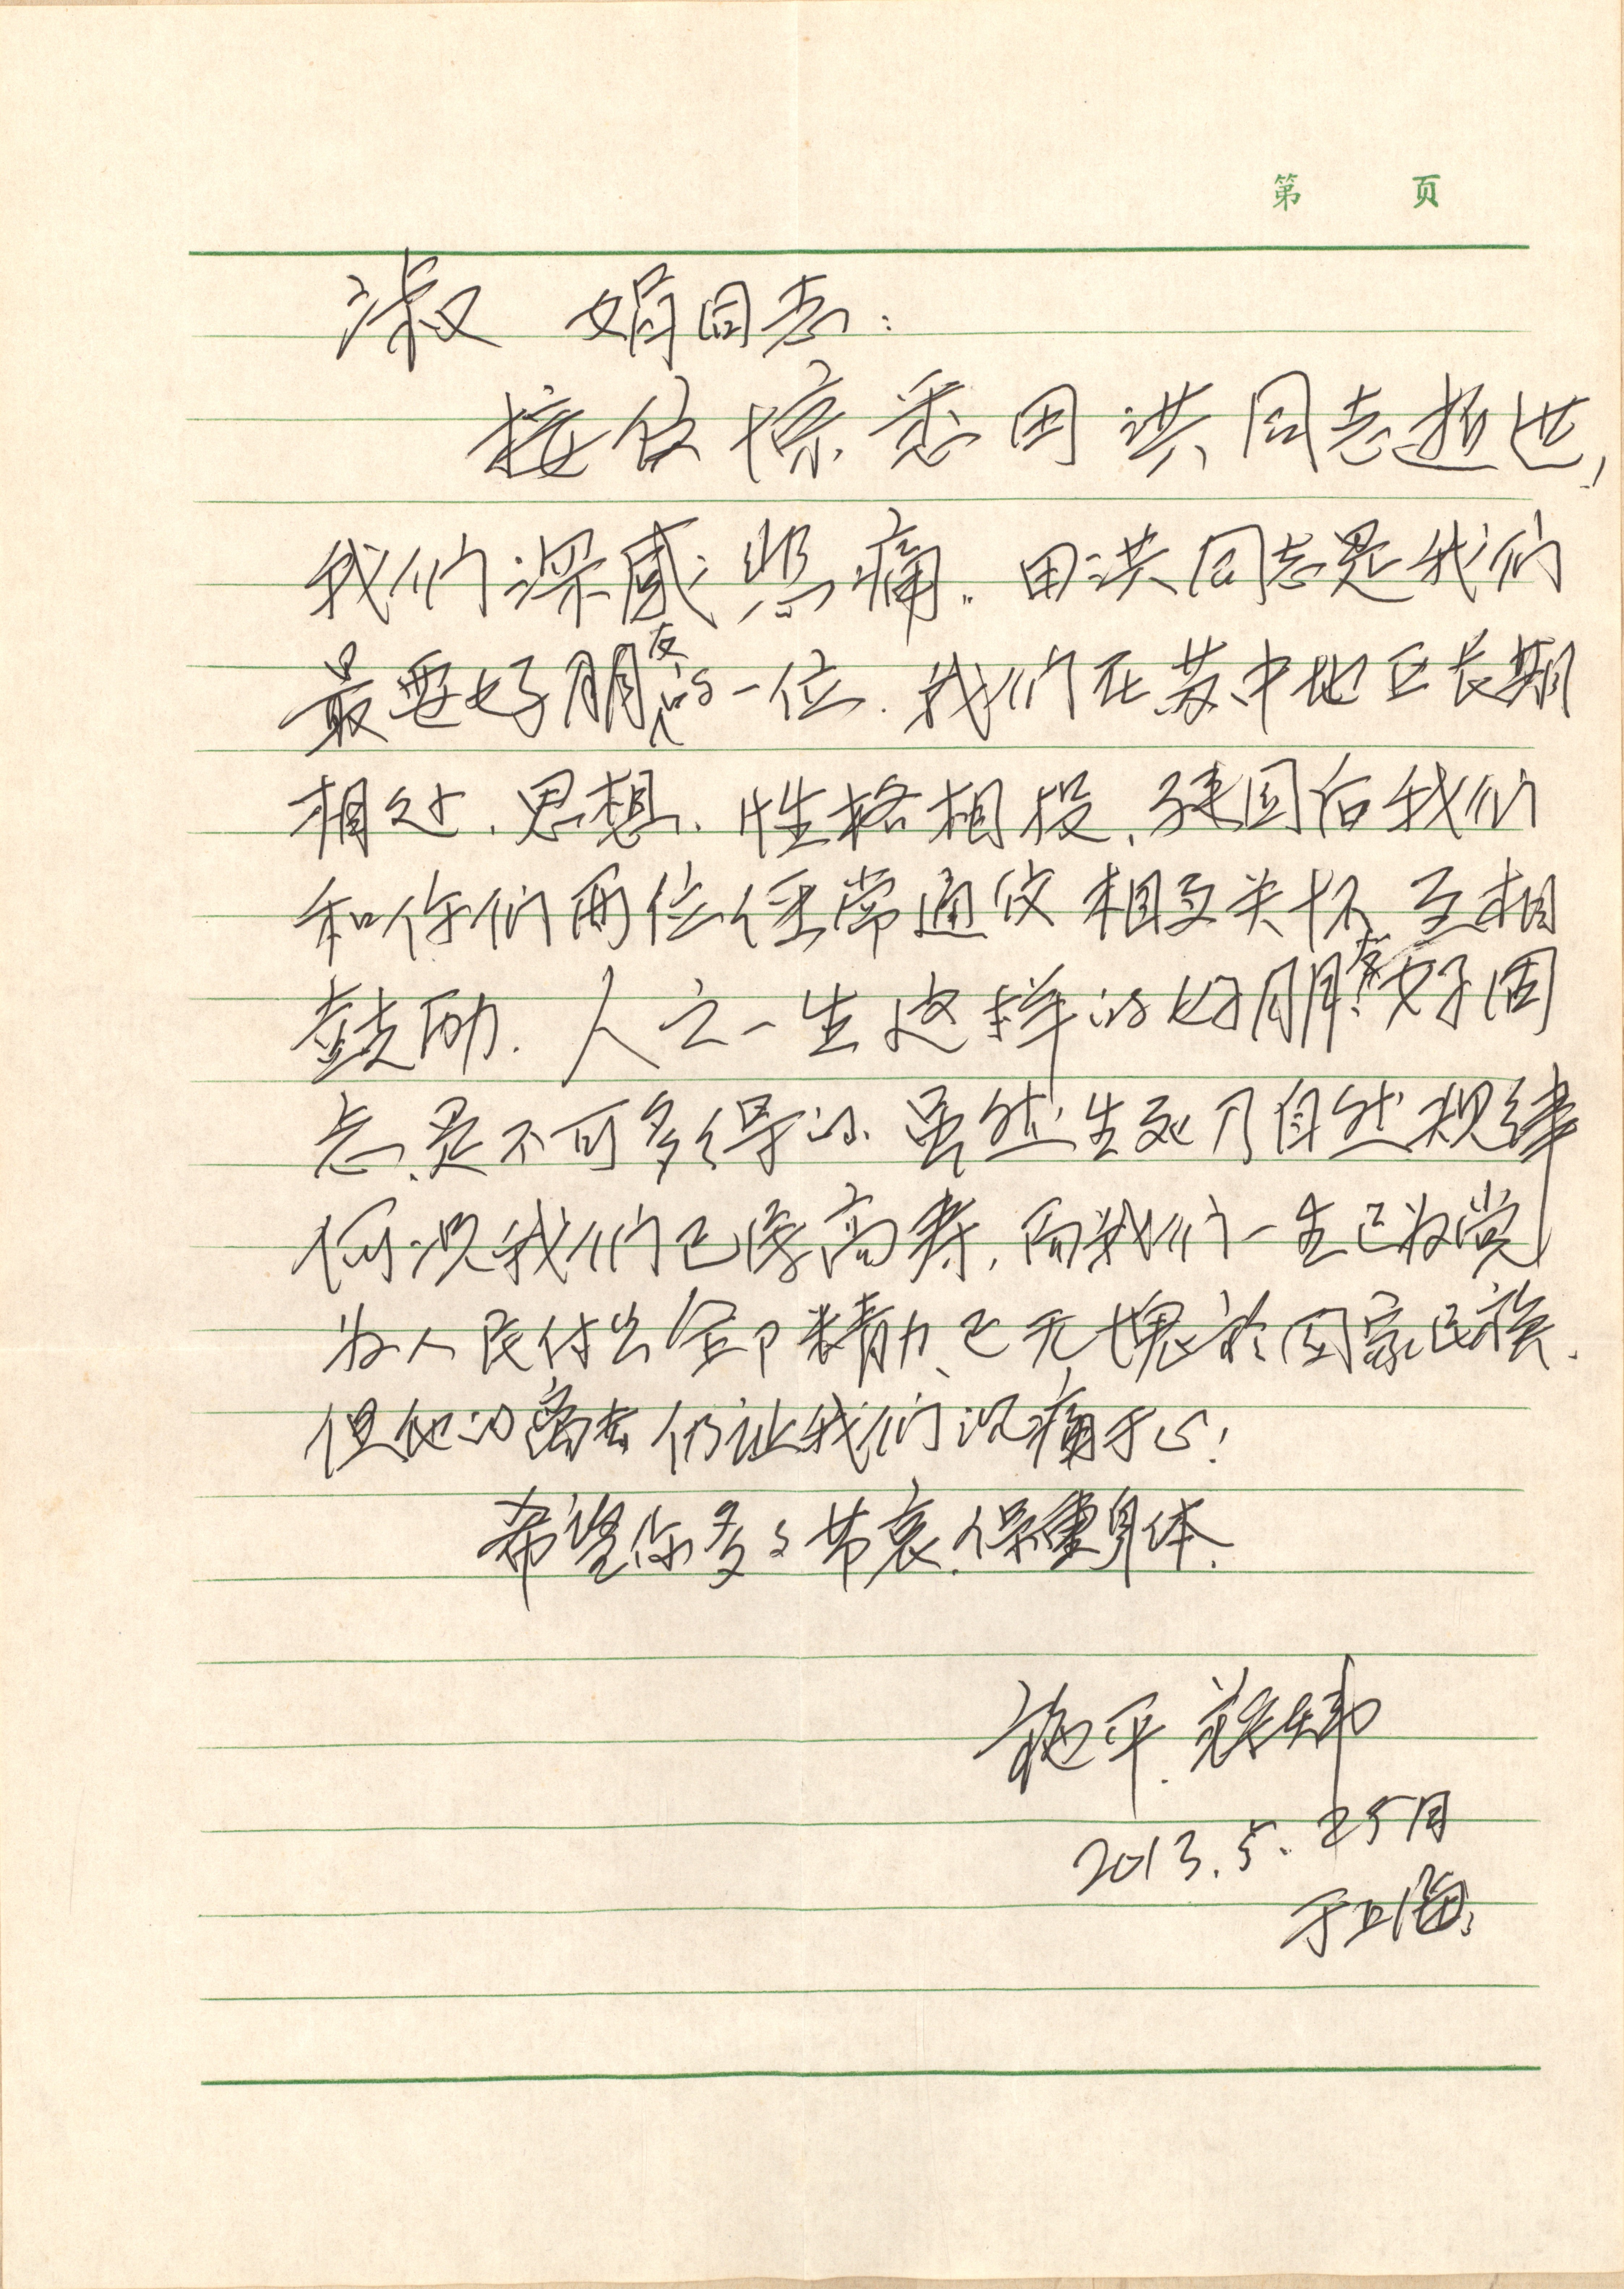 第 页
淑娟同志：
接信惊悉田洪同志逝世，
我们深感悲痛。田洪同志是我们
最要好朋友的一位．我们在苏中地区长期
相处．思想．性格相投、建国后我们
和你们两位经常通信相互关怀互相
鼓励．人之一生这样的好朋友好同
志、是不可多得的．虽然生死乃自然规律
何况我们已得高寿，而我们一生已为党
为人民付出全部精力、已无愧於国家民族．
但他的离去仍让我们沉痛于心！
希望你多多节哀．保重身体．
施平．
2013.5.25日
于上海